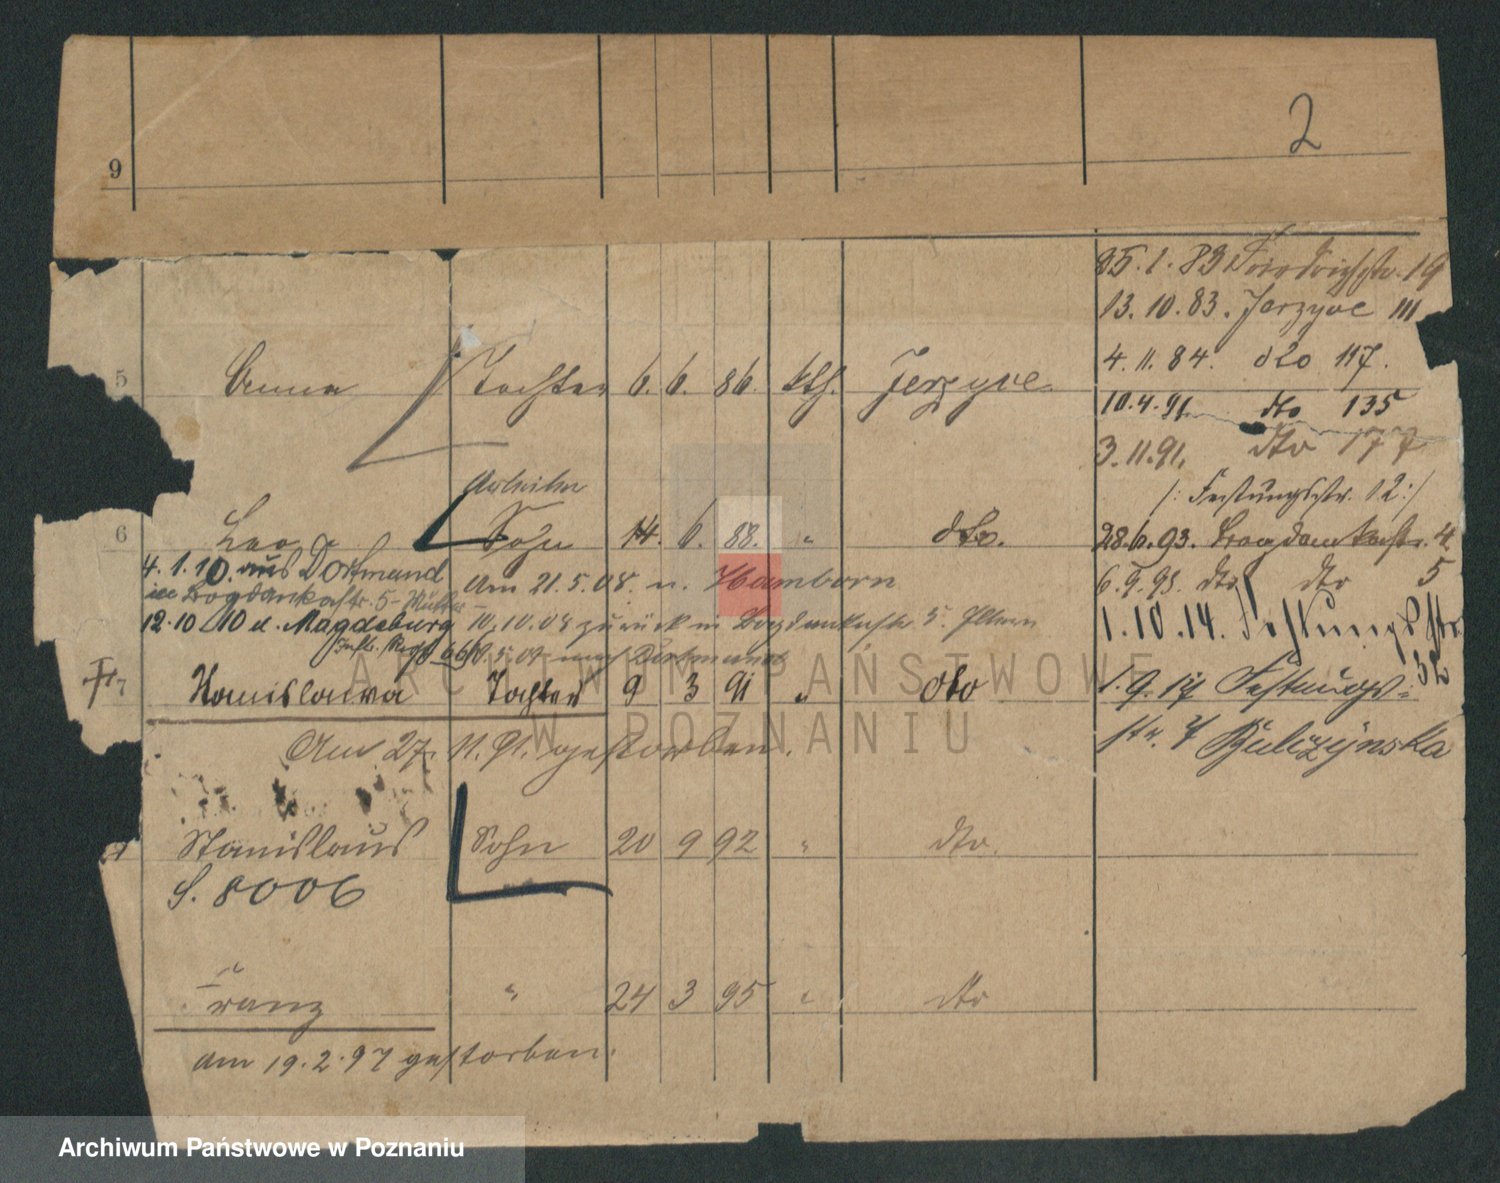 2
9
25.1.83 Friedrichstr. 19
13.10.83. Jerzyce 111
4.11.84. dto 117.
5 Anna Tochter 6. 6. 86. kth. Jerzyce.
10.4.91 dto 135
3.11.91. dto 177
Arbeiter
/: Festungsstr. 12 :/
6 Leo Sohn 14. 6. 88. " dto.
28.6.93. Bogdankastr. 4.
4.1.10. aus Dortmand
Am 21.5.08. n. Hamborn
6.9.93. dto dto 5
Bogdankastr. 5 - Mutter -
12.10 10 n. Magdeburg
10.10.08 zurück in Bogdankastr 5. Eltern
1.10.14. Festungsstr.
32
Inftr. Regt 66
5.09 nach Dortmund
7 Stanislawa Tochter 9 3 91 " dto
1.9.17 Festungs-
str. 7
Am 27. 11. 91. gestorben.
Stanislaus Sohn 20 9 92 " dto.
S. 8006
Franz " 24 3 95 " dto
am 19.2.97 gestorben.
ARCHIWUM PAŃSTWOWE
W POZNANIU
Archiwum Państwowe w Poznaniu